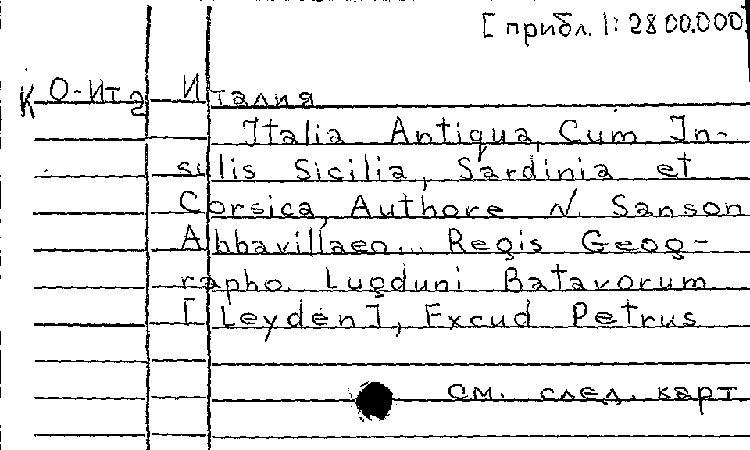 [прибл. 1:2800.000]
К О-Ита Италия
Italia Antiqua, Cum In-
sulis Sicilia, Sardinia et
Corsica, Authore N. Sanson
Abbavillaeo... Regis Geog-
rapho. Lugduni Batavorum
[Leyden], Excud Petrus
см. след. карт